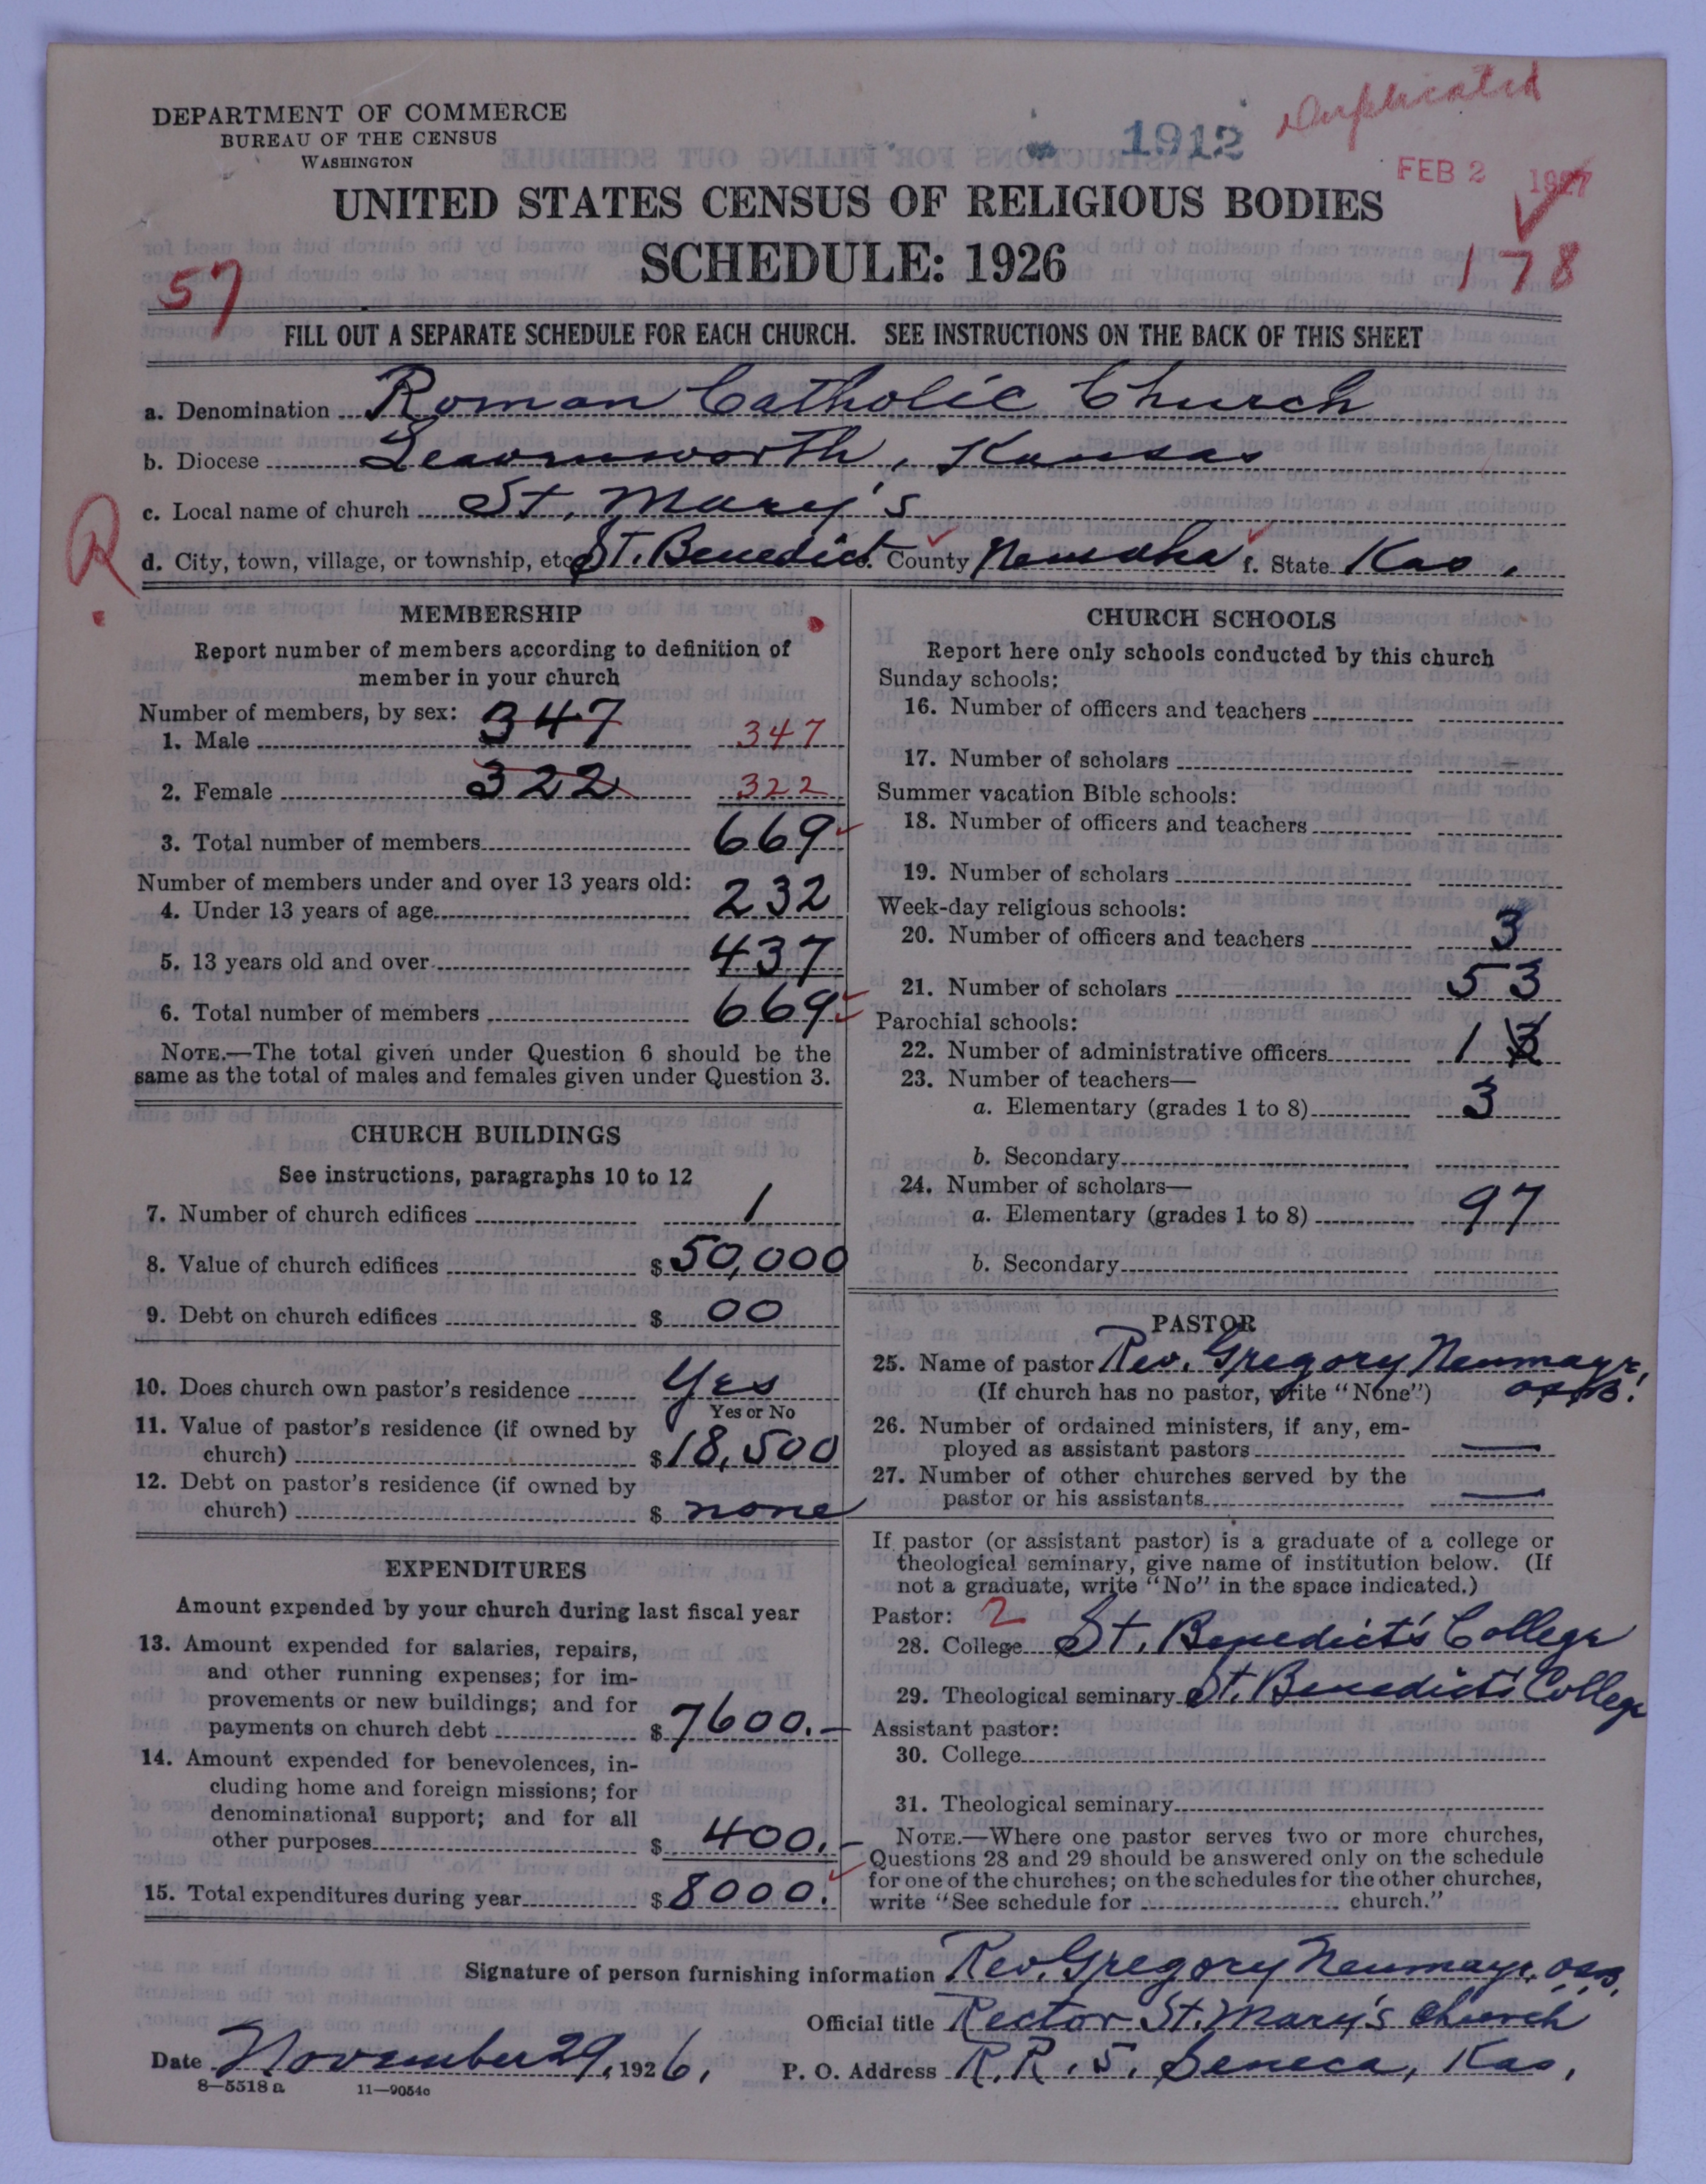 DEPARTMENT OF COMMERCE
BUREAU OF THE CENSUS
WASHINGTON
1912
Duplicated
FEB 2 1927
UNITED STATES CENSUS OF RELIGIOUS BODIES
SCHEDULE: 1926
57
178
FILL OUT A SEPARATE SCHEDULE FOR EACH CHURCH. SEE INSTRUCTIONS ON THE BACK OF THIS SHEET
a. Denomination Roman Catholic Church
b. Diocese Leavenworth, Kansas
c. Local name of church St. Mary's
d. City, town, village, or township, etc. St. Benedict e. County Nemaha f. State Kas.
MEMBERSHIP
Report number of members according to definition of
member in your church
Number of members, by sex:
1. Male 347 347
2. Female 322 322
3. Total number of members 669
Number of members under and over 13 years old:
4. Under 13 years of age 232
5. 13 years old and over 437
6. Total number of members 669
NOTE.—The total given under Question 6 should be the
same as the total of males and females given under Question 3.
CHURCH BUILDINGS
See instructions, paragraphs 10 to 12
7. Number of church edifices 1
8. Value of church edifices $50,000
9. Debt on church edifices $ 00
10. Does church own pastor's residence Yes
Yes or No
11. Value of pastor's residence (if owned by
church) $18,500
12. Debt on pastor's residence (if owned by
church) $ none
EXPENDITURES
Amount expended by your church during last fiscal year
13. Amount expended for salaries, repairs,
and other running expenses; for im-
provements or new buildings; and for
payments on church debt $7600.—
14. Amount expended for benevolences, in-
cluding home and foreign missions; for
denominational support; and for all
other purposes $ 400.—
15. Total expenditures during year $8000.
CHURCH SCHOOLS
Report here only schools conducted by this church
Sunday schools:
16. Number of officers and teachers
17. Number of scholars
Summer vacation Bible schools:
18. Number of officers and teachers
19. Number of scholars
Week-day religious schools:
20. Number of officers and teachers 3
21. Number of scholars 53
Parochial schools:
22. Number of administrative officers 1 3
23. Number of teachers—
a. Elementary (grades 1 to 8) 3
b. Secondary
24. Number of scholars—
a. Elementary (grades 1 to 8) 97
b. Secondary
PASTOR
25. Name of pastor Rev. Gregory Neumayr,
(If church has no pastor, write "None") OSB.
26. Number of ordained ministers, if any, em-
ployed as assistant pastors —
27. Number of other churches served by the
pastor or his assistants —
If pastor (or assistant pastor) is a graduate of a college or
theological seminary, give name of institution below. (If
not a graduate, write "No" in the space indicated.)
Pastor: 2
28. College St. Benedict's College
29. Theological seminary St. Benedict's College
Assistant pastor:
30. College
31. Theological seminary
NOTE.—Where one pastor serves two or more churches,
Questions 28 and 29 should be answered only on the schedule
for one of the churches; on the schedules for the other churches,
write "See schedule for church."
Signature of person furnishing information Rev. Gregory Neumayr. OSB.
Official title Rector St. Mary's Church
Date November 29, 1926. P. O. Address R.R. 5, Seneca, Kas.
8—5518 a 11—9054c